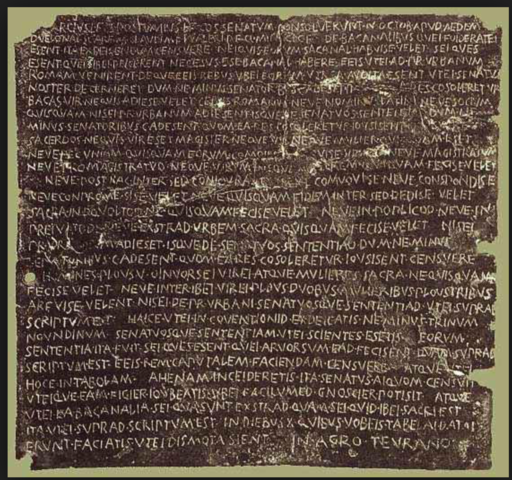 MARCIVS L F S POSTVMIVS L F COS SENATVM CONSOLVERVNT N OCTOB APVD AEDEM
DVELONAI DE BACANALIBVS QVEI FOIDERATEI
ESENT ITA EXDEICENDVM CENSVERE NEIQVIS EORVM BACANAL HABVISE VELET SEI QVES
ESENT QVEI SIBEI DEICERENT NECESVS ESE BACANAL HABERE EEIS VTEI AD PR VRBANVM
ROMAM VENIRENT DEQVE EEIS REBVS VBEI EORVM ESENT VTEI SENATVS
NOSTER DECERNERET DVM NE MINVS SENATORBVS RES COSOLORETVR
BACAS VIR NEQVIS ADIESE VELET CEIVIS ROMANVS NEVE NOMINVS LATINI NEVE SOCIVM
QVISQVAM NISEI PR VRBANVM ADIESENT ISQVE SENATVOS SENTENTIAD DVM NE
MINVS SENATORIBVS C ADESENT QVOM EA RES COSOLERETVR IOVSISENT
SACERDOS NEQVIS VIR ESET MAGISTER NEQVE VIR NEQVE MVLIER
NEVE PECVNIAM QVISQVAM EORVM COMOINEM NEVE MAGISTRATVM
NEVE PRO MAGISTRATVO NEQVE VIRVM QVIQVAM FECISE VELET
NEVE POST HAC INTER SED CONIOVRA COMVOVISE NEVE CONSPONDISE
NEVE CONPROMESISE VELET NEVE QVISQVAM FIDEM INTER SED DEDISE VELET
SACRA IN OQVOLTOD NE QVISQVAM FECISE VELET NEVE IN POPLICOD NEVE IN
PREIVATOD NEVE EXSTRAD VRBEM SACRA QVISQVAM FECISE VELET NISEI
PR VRBANVM ADIESET ISQVE DE SENATVOS SENTENTIAD DVM NE MINVS
SENATORIBVS C ADESENT QVOM EA RES COSOLERETVR IOVSISENT CENSVERE
HOMINES PLOVS V OINVORSEI VIREI ATQVE MVLIERES SACRA NE QVISQVAM
FECISE VELET NEVE INTER IBEI VIREI PLOVS DVOBVS MVLIERIBVS PLOVS TRIBVS
ARFVISE VELENT NISEI DE PR VRBANI SENATVOSQVE SENTENTIAD VTEI SVPRAD
SCRIPTVM EST HAICE VTEI IN COVENTIONID EXDEICATIS NE MINVS TRINVM
NOVNDINVM SENATVOSQVE SENTENTIAM VTEI SCIENTES ESETIS EORVM
SENTENTIA ITA FVIT SEI QVES ESENT QVEI ARVORSVM EAD FECISENT QVAM SVPRAD
SCRIPTVM EST EEIS REM CAPVTALEM FACIENDAM CENSVERE ATQVE VTEI
HOCE IN TABOLAM AHENAM INCEIDERETIS ITA SENATVS AIQVOM CENSVIT
VTEIQVE EAM FIGIER IOVBEATIS VBEI FACILVMED GNOSCIER POTISIT ATQVE
VTEI EA BACANALIA SEI QVA SVNT EXSTRAD QVAM SEI QVID IBEI SACRI EST
ITA VTEI SVPRAD SCRIPTVM EST IN DIEBVS X QVIBVS VOBEIS TABELAI DATAI
ERVNT FACIATIS VTEI DISMOTA SIENT IN AGRO TEVRANO